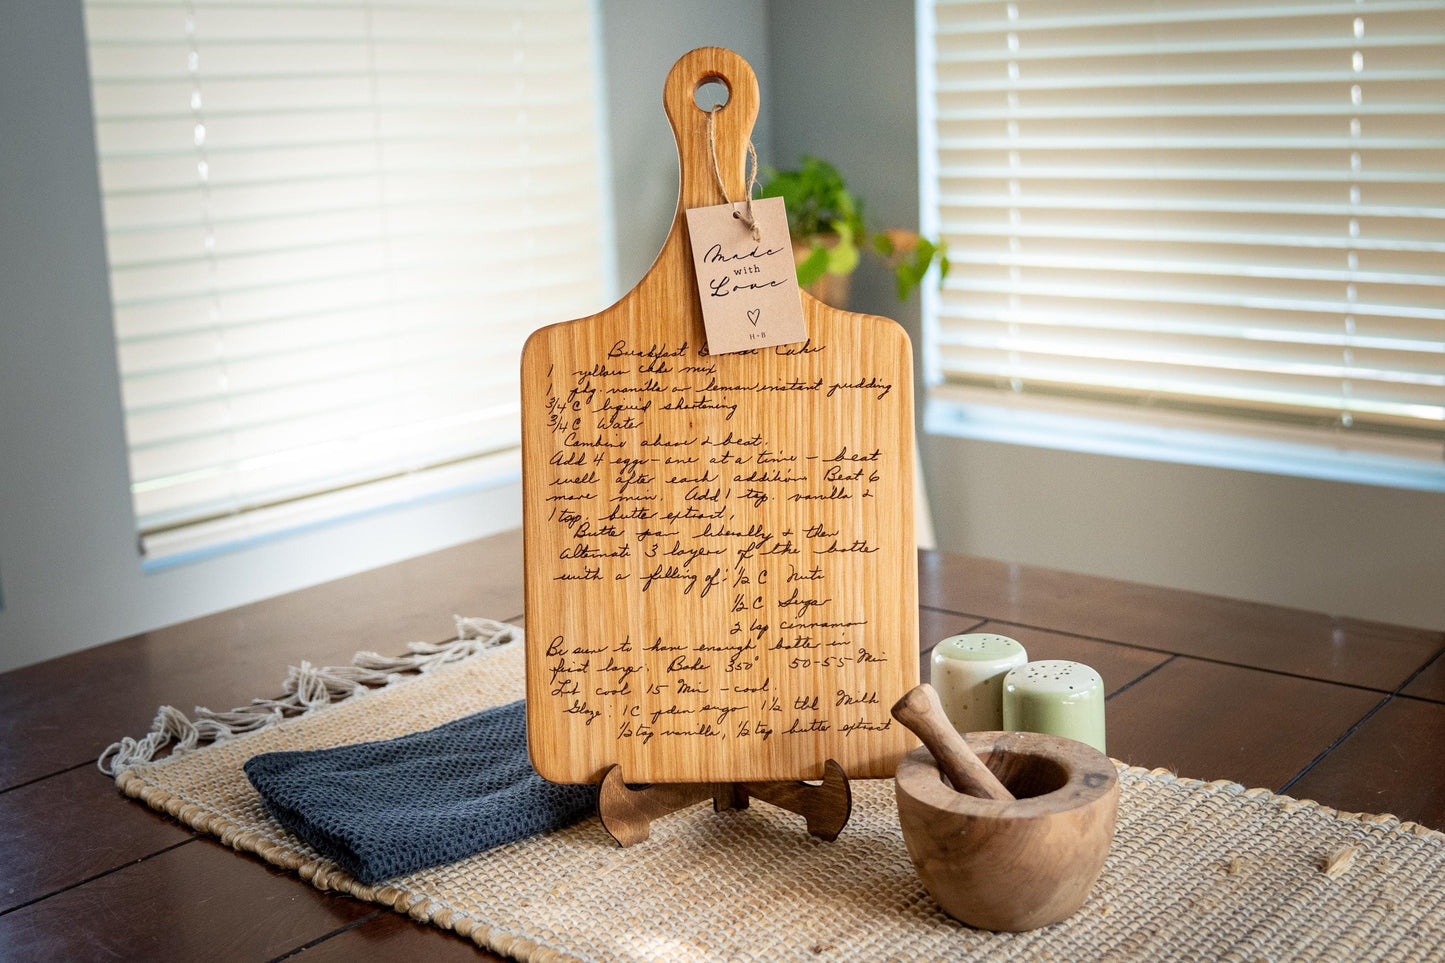 Made
with
Love
H + B
Breakfast Cake
1 yellow cake mix
1 pkg. vanilla or lemon instant pudding
3/4 C liquid shortening
3/4 C Water
Combine above & beat.
Add 4 eggs - one at a time - beat
well after each addition. Beat 6
more min. Add 1 tsp. vanilla &
1 tsp. butter extract.
Butter pan liberally & then
alternate 3 layers of the batter
with a filling of: 1/2 C Nuts
1/2 C Sugar
2 tsp cinnamon
Be sure to have enough batter in
first layer. Bake 350° 50-55 Min
Let cool 15 Min - cool.
Glaze: 1 C pden sugar 1 1/2 tbl Milk
1/2 tsp vanilla, 1/2 tsp butter extract